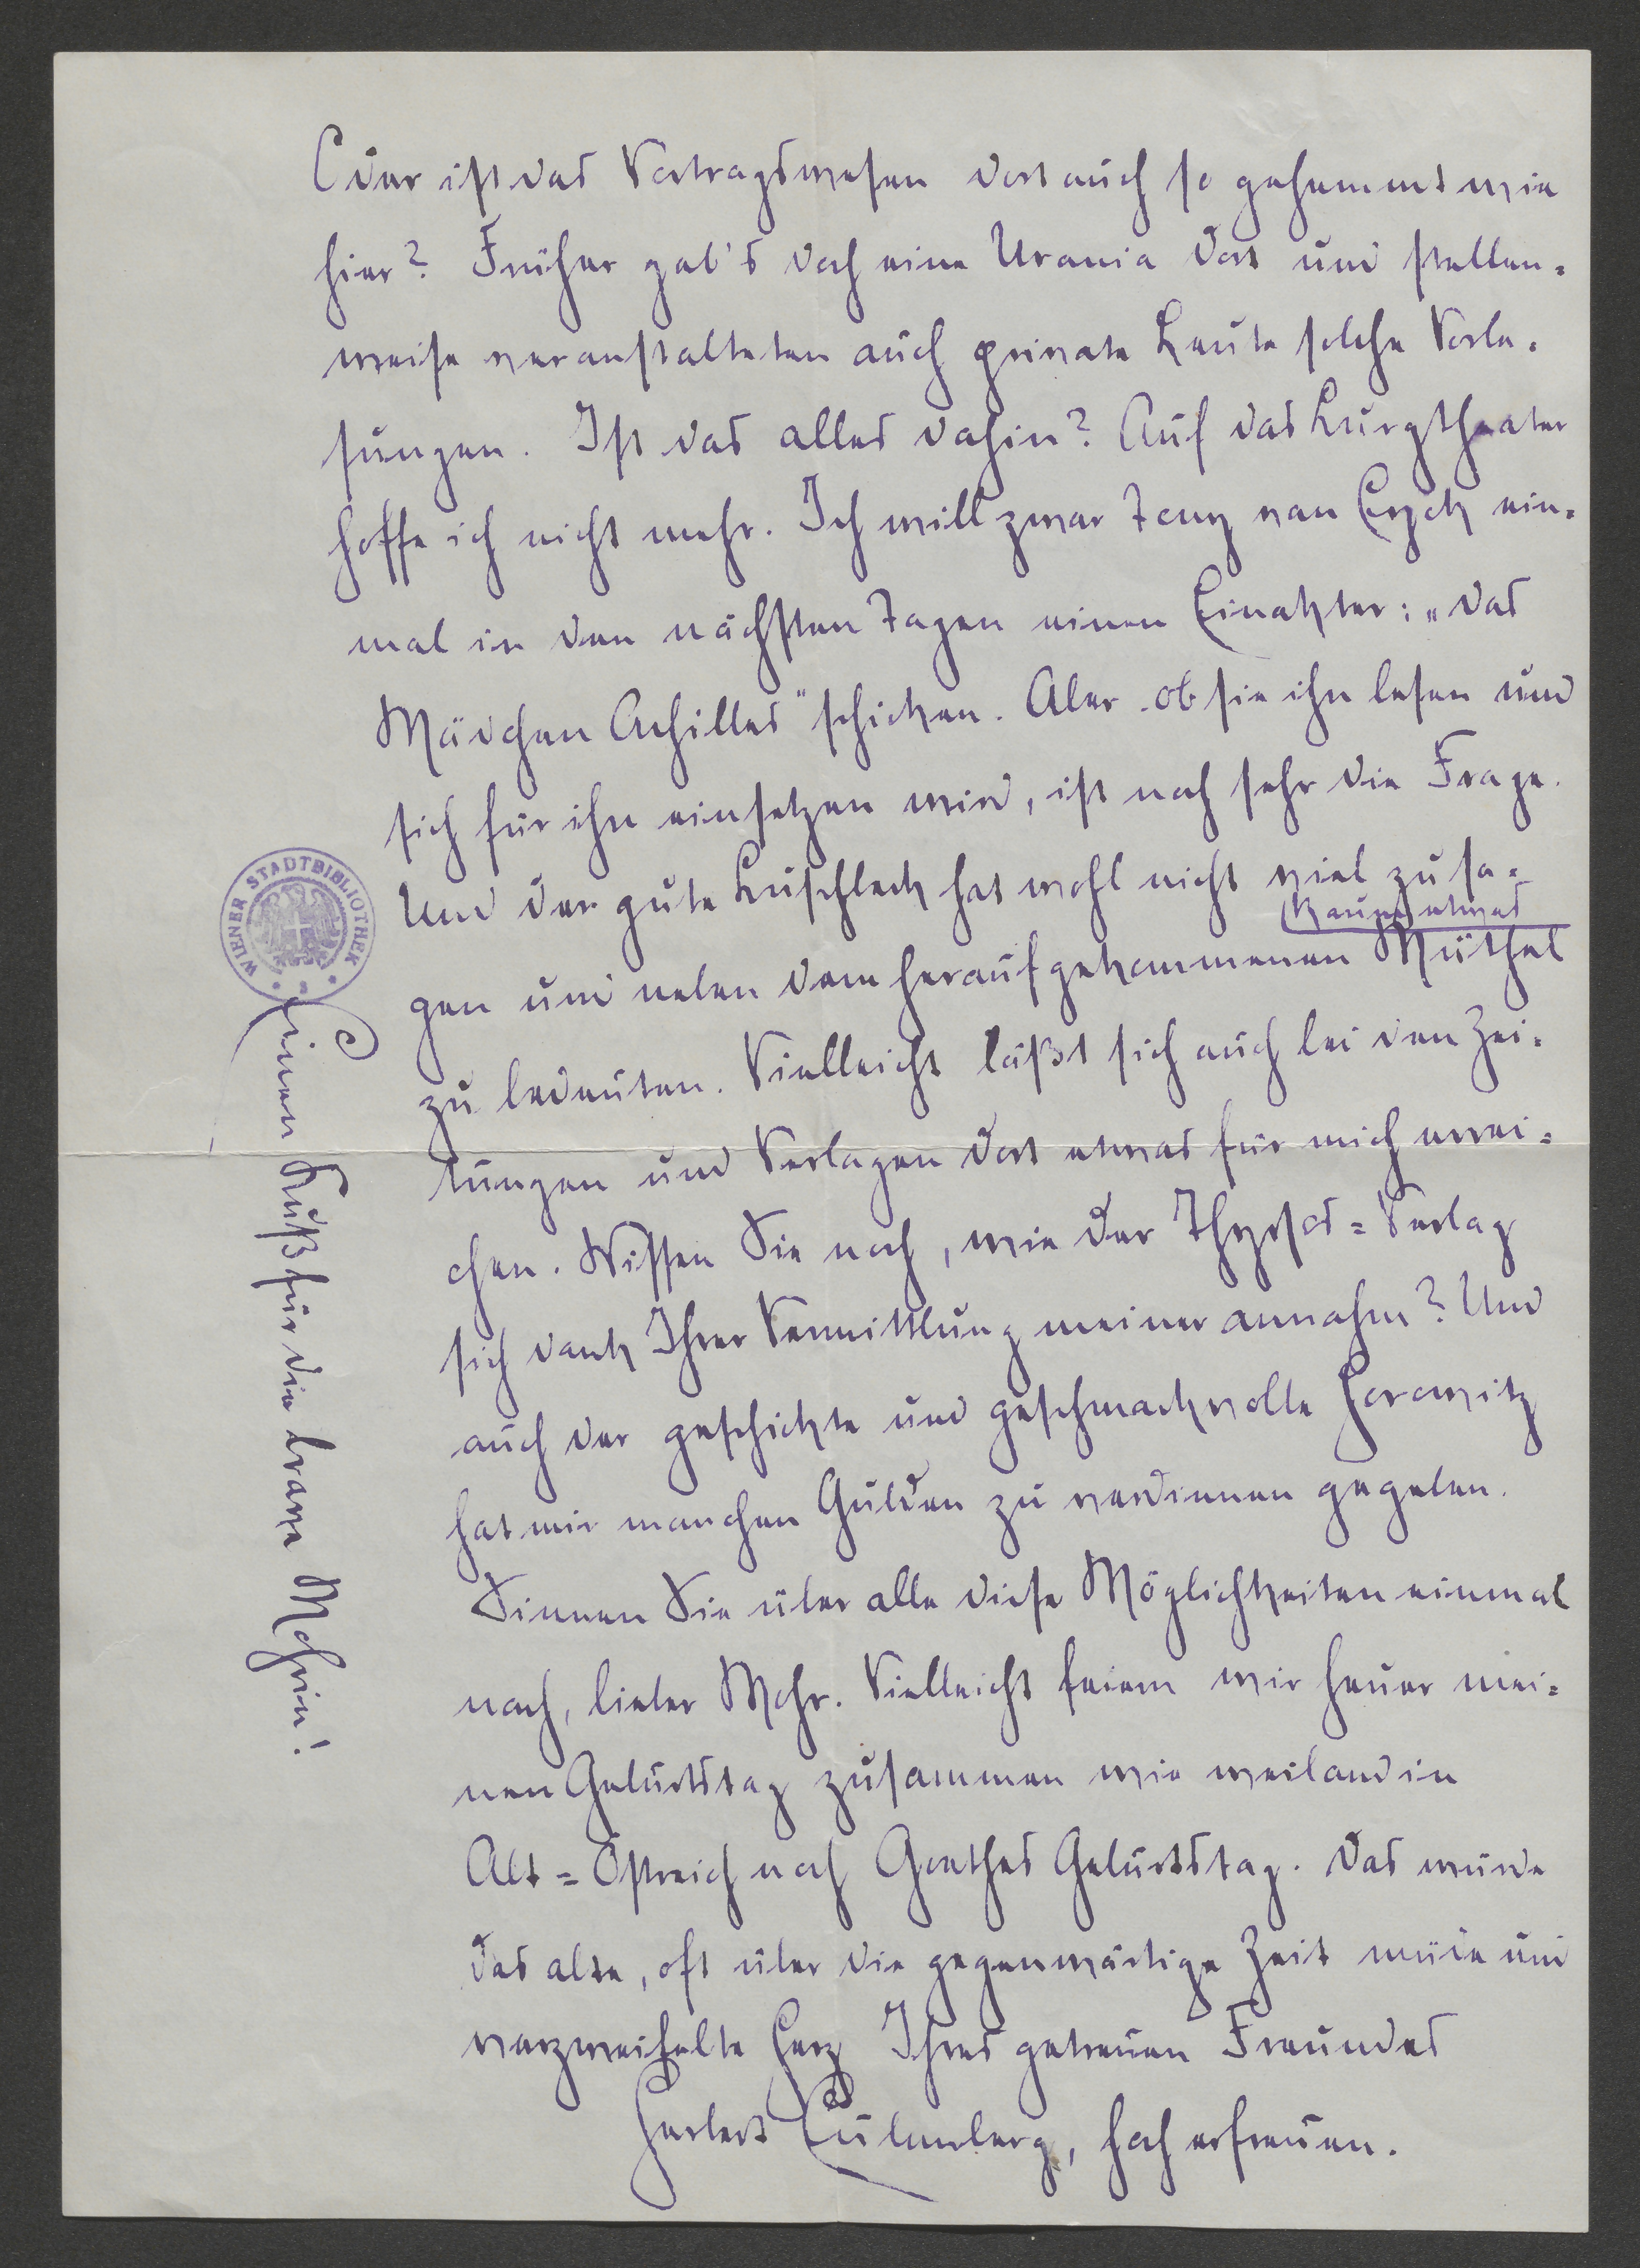 Oder ist das Vortragswesen dort auch so gehemmt wie
hier? Früher gab's doch eine Urania dort und stellen=
weise veranstalteten auch private Leute solche Vorle=
sungen. Ist das alles dahin? Auf das Burgtheater
hoffe ich nicht mehr. Ich will zwar Tony van Eyck ein=
mal in den nächsten Tagen einen Einakter: „Das
Mädchen Achilles" schicken. Aber ob sie ihn lesen und
sich für ihn einsetzen wird, ist noch sehr die Frage.
Und der gute Buschbeck hat wohl nicht viel zu sa=
kaum etwas
gen und neben dem heraufgekommenen Müthel
zu bedeuten. Vielleicht läßt sich auch bei den Zei=
tungen und Verlagen dort etwas für mich errei=
chen. Wissen Sie noch, wie der Thyrsos=Verlag
sich dank Ihrer Vermittlung meiner annahm? Und
auch der geschickte und geschmackvolle Horowitz
hat mir manchen Gulden zu verdienen gegeben.
Sinnen Sie über alle diese Möglichkeiten einmal
nach, lieber Mohr. Vielleicht feiern wir heuer mei=
nen Geburtstag zusammen wie weiland in
Alt=Östreich noch Goethes Geburtstag. Das würde
das alte, oft über die gegenwärtige Zeit müde und
verzweifelte Herz Ihres getreuen Freundes
Herbert Eulenberg, hoch erfreuen.
Einen Kuß für die brave Mohrin!
WIENER STADTBIBLIOTHEK